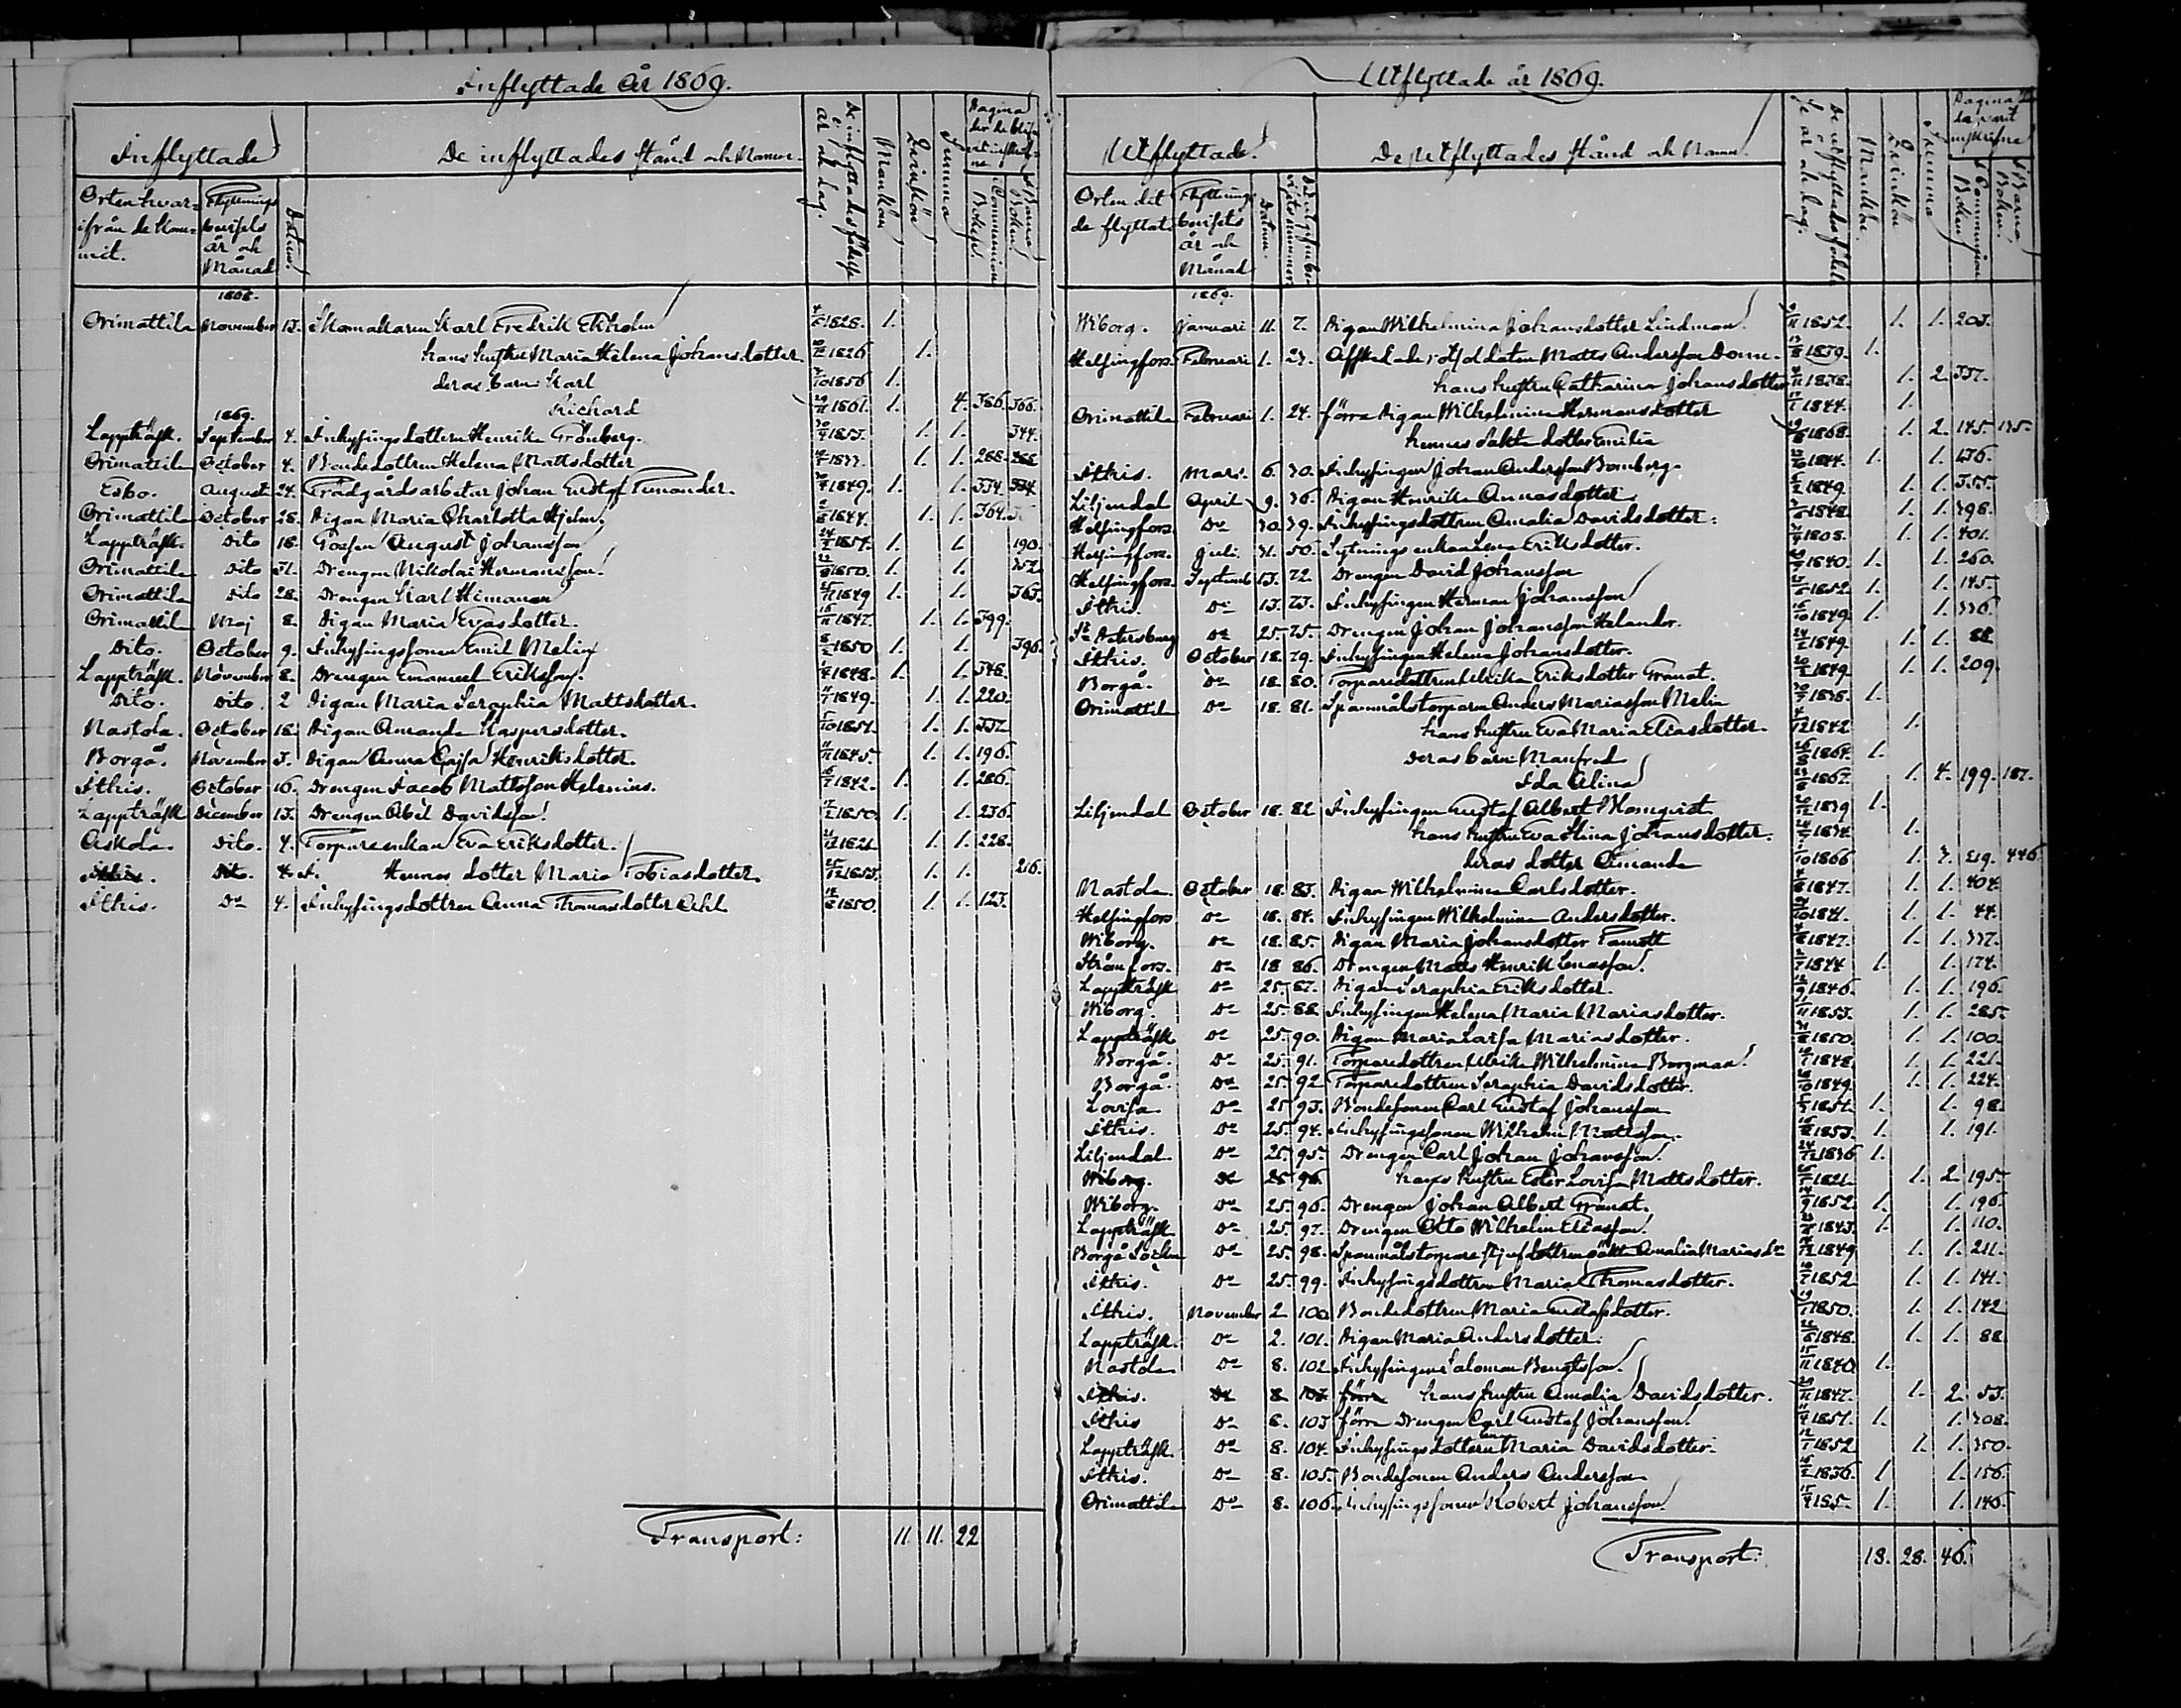 Inflyttade År 1869.
Inflyttade
De inflyttades stånd och Namn.
De inflyttades födelse år och dag.
Mankön
Qvinkön
Summa
Pagina der de blifvit inskrifne
Orten hvarifrån de kommit.
Flyttnings betygets år och Månad
Datum
i Communion Boken
i Barna Boken
1868.
Orimattila November 13. Skomakaren Karl Fredrik Ekholm 1828. 1.
hans hustru Maria Helena Johansdotter 1826 1.
deras barn: Karl 1856 1.
Richard 1861. 1. 4. 386. 366.
1869.
Lappträsk. September 4. Inhysingsdottern Henrika Grönberg. 1853. 1. 1. 344.
Orimattila October 4. Bondedottren Helena Mattsdotter 1833. 1. 1. 288. 288
Esbo. August 24. Trädgårdsarbetar Johan Gustaf Timander. 1849. 1. 1. 334. 334
Orimattila October 28. Pigan Maria Charlotta Hjelm. 1844. 1. 1. 364.
Lappträsk. Dito 18. Gossen August Johansson 1857. 1. 1. 190.
Orimattila Dito 31. Drengen Nikolai Hermansson. 1850. 1. 1. 352.
Orimattila Dito 28. Drengen Karl Himanen 1849 1. 1. 363.
Orimattila Maj 8. Pigan Maria Evasdotter. 1847. 1. 1. 399.
Dito. October 9. Inhysingssonen Emil Melin 1850 1. 1. 396.
Lappträsk. November 8. Drengen Emanuel Eriksson. 1848. 1. 1. 348.
Dito. Dito. 2 Pigan Maria Seraphia Mattsdotter. 1849. 1. 1. 220.
Nastola. October 18. Pigan Amanda Kaspersdotter. 1851. 1. 1. 332.
Borgå. November 3. Pigan Anna Cajsa Henriksdotter. 1845. 1. 1. 196.
Ithis. October 16. Drengen Jacob Mattsson Helenius. 1842. 1. 1. 286.
Lappträsk December 13. Drengen Abel Davidsson. 1850. 1. 1. 236.
Askola. Dito. 4. Torpareenkan Eva Eriksdotter. 1821 1. 1. 228.
Ithis. Dito. 4. Hennes dotter Maria Tobiasdotter. 1853. 1. 1. 216.
Ithis. Do 4. Inhysingsdottren Anna Thomasdotter Ahl 1850. 1. 1. 123.
Transport: 11. 11. 22
Utflyttade år 1869.
Utflyttade.
De Utflyttades stånd och Namn.
De utflyttades födelse år och dag.
Mankön.
Qvinkön
Summa
Pagina de varit inskrifne
Orten dit de flyttat.
Flyttnings betygets år och Månad
Datum.
i Communion Boken
i Barna Boken.
1869.
Wiborg. Januari 11. 7. Pigan Wilhelmina Johansdotter Lindman. 1852. 1. 1. 203.
Helsingfors. Februari 1. 23. Afskedade Soldaten Matts Andersson Donn. 1839. 1.
hans hustru Catharina Johansdotter 1838. 1. 2. 337.
Orimattila Februari 1. 24. förra Pigan Wilhelmina Hermansdotter 1844. 1.
hennes oäkta dotter Emilia 1868. 1. 2. 145. 135.
Ithis. Mars. 6. 30. Inhysingen Johan Andersson Bomberg. 1844. 1. 1. 436.
Liljendal April 9. 36. Pigan Henrika Annasdotter 1849. 1. 1. 355.
Helsingfors. Do 30. 39. Inhysingsdottren Amalia Davidsdotter. 1848. 1. 1. 398.
Helsingfors. Juli. 31. 50. Sytnings enkan Lena Eriksdotter. 1808. 1. 1. 401.
Helsingfors. Septemb 13. 72. Drengen David Johansson 1840. 1. 1. 260.
Ithis. Do 13. 73. Inhysingen Herman Johansson 1852. 1. 1. 145.
St. Petersburg Do 25. 75. Drengen Johan Johansson Helander. 1849. 1. 1. 336.
Ithis. October 18. 79. Inhysingen Helena Johansdotter. 1849. 1. 1. 88.
Borgå. Do 18. 80. Torparedottren Ulrika Eriksdotter Granat. 1849. 1. 1. 209.
Orimattila Do 18. 81. Spannmålstorparen Anders Mariasson Melin 1838. 1.
hans hustru Eva Maria Eliasdotter. 1842 1.
Deras barn: Manfred 1864. 1.
Ida Alina 1867. 1. 4. 199. 187.
Liljendal October 18. 82 Inhysingen Gustaf Albert Blomqvist 1839 1.
hans hustru Eva Stina Johansdotter. 1834. 1.
deras dotter Amanda 1866 1. 3. 219. 446
Nastola October 18. 83. Pigan Wilhelmina Carlsdotter. 1847. 1. 1. 404.
Helsingfors Do 18. 84. Inhysingen Wilhelmina Andersdotter. 1841. 1. 1. 44.
Wiborg. Do 18. 85. Pigan Maria Johansdotter 1847. 1. 1. 337.
Strömfors. Do 18 86. Drengen Matts Henrik Lenasson. 1844 1. 1. 174.
Lappträsk Do 25. 87. Pigan Seraphia Eriksdotter. 1846. 1. 1. 196.
Wiborg. Do 25. 88. Inhysingen Helena Maria Mariasdotter. 1853. 1. 1. 285.
Lappträsk Do 25. 90. Pigan Maria Lovisa Mariasdotter. 1850. 1. 1. 100.
Borgå. Do 25. 91. Torparedottren Ulrika Wilhelmina Borgman. 1848. 1. 1. 221.
Borgå. Do 25. 92 Torparedottren Seraphia Davidsdotter. 1849. 1. 1. 224.
Lovisa. Do 25 93. Bondesonen Carl Gustaf Johansson 1851. 1. 1. 98.
Ithis. Do 25. 94. Inhysingssonen Wilhelm Mattsson. 1853. 1. 1. 191.
Liljendal. Do 25. 95. Drengen Carl Johan Johansson. 1836 1.
Wiborg. Do 25 96. hans hustru Ester Lovisa Mattsdotter. 1821. 1. 2. 195.
Wiborg. Do 25. 96. Drengen Johan Albert Granat. 1852. 1. 1. 196.
Lappträsk Do 25. 97. Drengen Otto Wilhelm Eliasson. 1843. 1. 1. 110.
Borgå Socken Do 25. 98. Spannmålstorpare styfdottren oäkta Amalia Mariasdr 1849 1. 1. 211.
Ithis. Do 25. 99. Inhysingsdottren Maria Thomasdotter. 1852 1. 1. 141.
Ithis. November 2 100. Bondedottren Maria Gustafsdotter. 1850. 1. 1. 142
Lappträsk. Do 2. 101. Pigan Maria Andersdotter. 1848. 1. 1. 88.
Nastola Do 8. 102 Inhysingen Salomon Bengtsson. 1840. 1.
Ithis. Do 8 103 förra hans hustru Amalia Davidsdotter. 1847. 1. 2. 53.
Ithis Do 8. 103 förra Drengen Carl Gustaf Johansson. 1851. 1. 1. 308.
Lappträsk. Do 8. 104. Inhysingsdottern Maria Davidsdotter. 1852 1. 1. 350.
Ithis. Do 8. 105. Bondesonen Anders Andersson 1836. 1 1. 156.
Orimattila Do 8. 106. Inhysingssonen Robert Johansson 1. 1. 146.
Transport: 18. 28. 46.